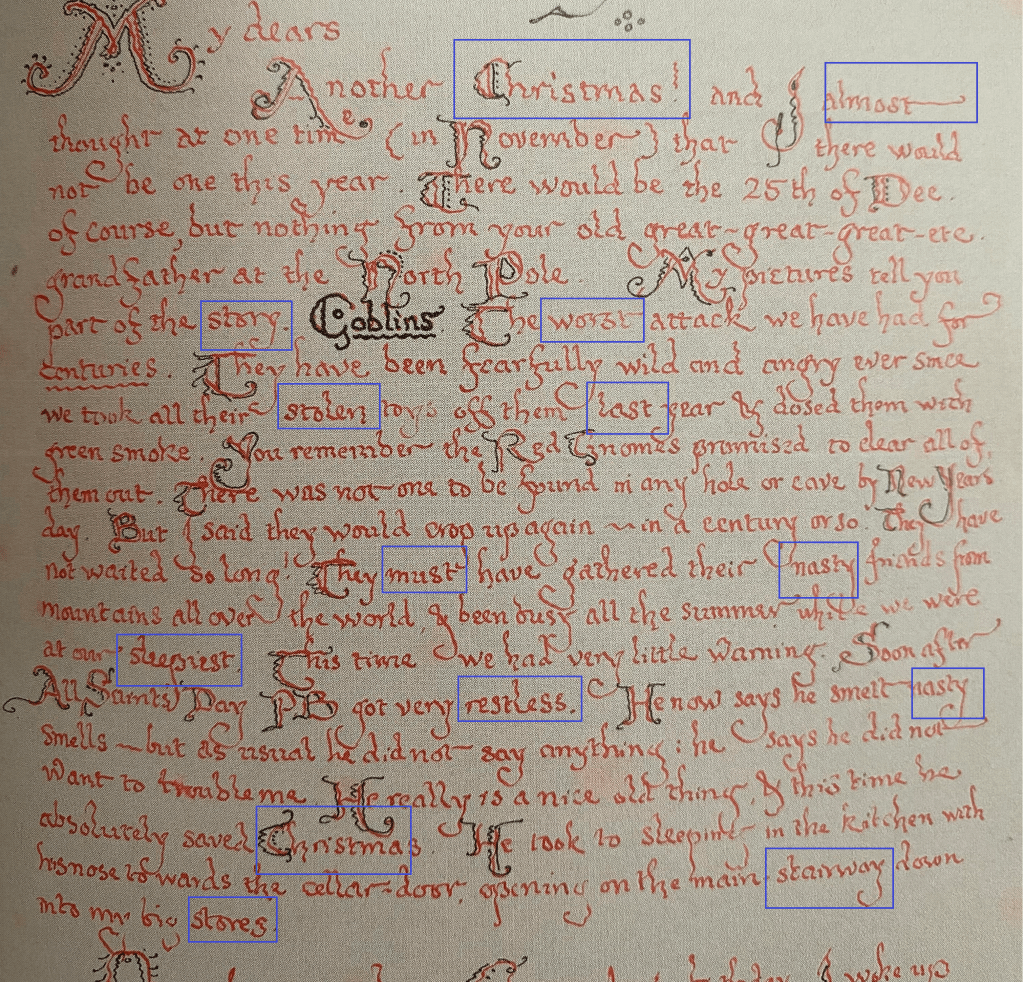 My dears
Another Christmas! and I almost
thought at one time (in November) that there would
not be one this year. There would be the 25th of Dec.
of course, but nothing from your old great-great-great-etc.
grandfather at the North Pole. My pictures tell you
part of the story. Goblins. The worst attack we have had for
centuries. They have been fearfully wild and angry ever since
we took all their stolen toys off them last year & dosed them with
green smoke. You remember the Red Gnomes promised to clear all of
them out. There was not one to be found in any hole or cave by New Years
day. But I said they would crop up again – in a century or so. They have
not waited so long! They must have gathered their nasty friends from
mountains all over the world, & been busy all the summer while we were
at our sleepiest. This time we had very little warning. Soon after
All Saints' Day PB got very restless. He now says he smelt nasty
smells – but as usual he did not say anything: he says he did not
want to trouble me. He really is a nice old thing, & this time he
absolutely saved Christmas. He took to sleeping in the kitchen with
his nose towards the cellar-door, opening on the main stairway down
into my big stores.
I woke up